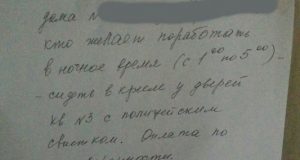 дома №
кто желает поработать
в ночное время (с 1⁰⁰ по 5⁰⁰) -
- сидеть в кресле у дверей
кв №3 с полицейским
свистком. Оплата по